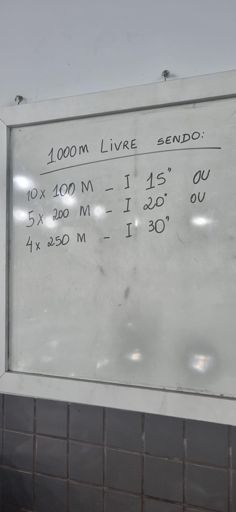 1000M LIVRE SENDO:
10 x 100 M - I 15" OU
5 x 200 M - I 20" OU
4 x 250 M - I 30"